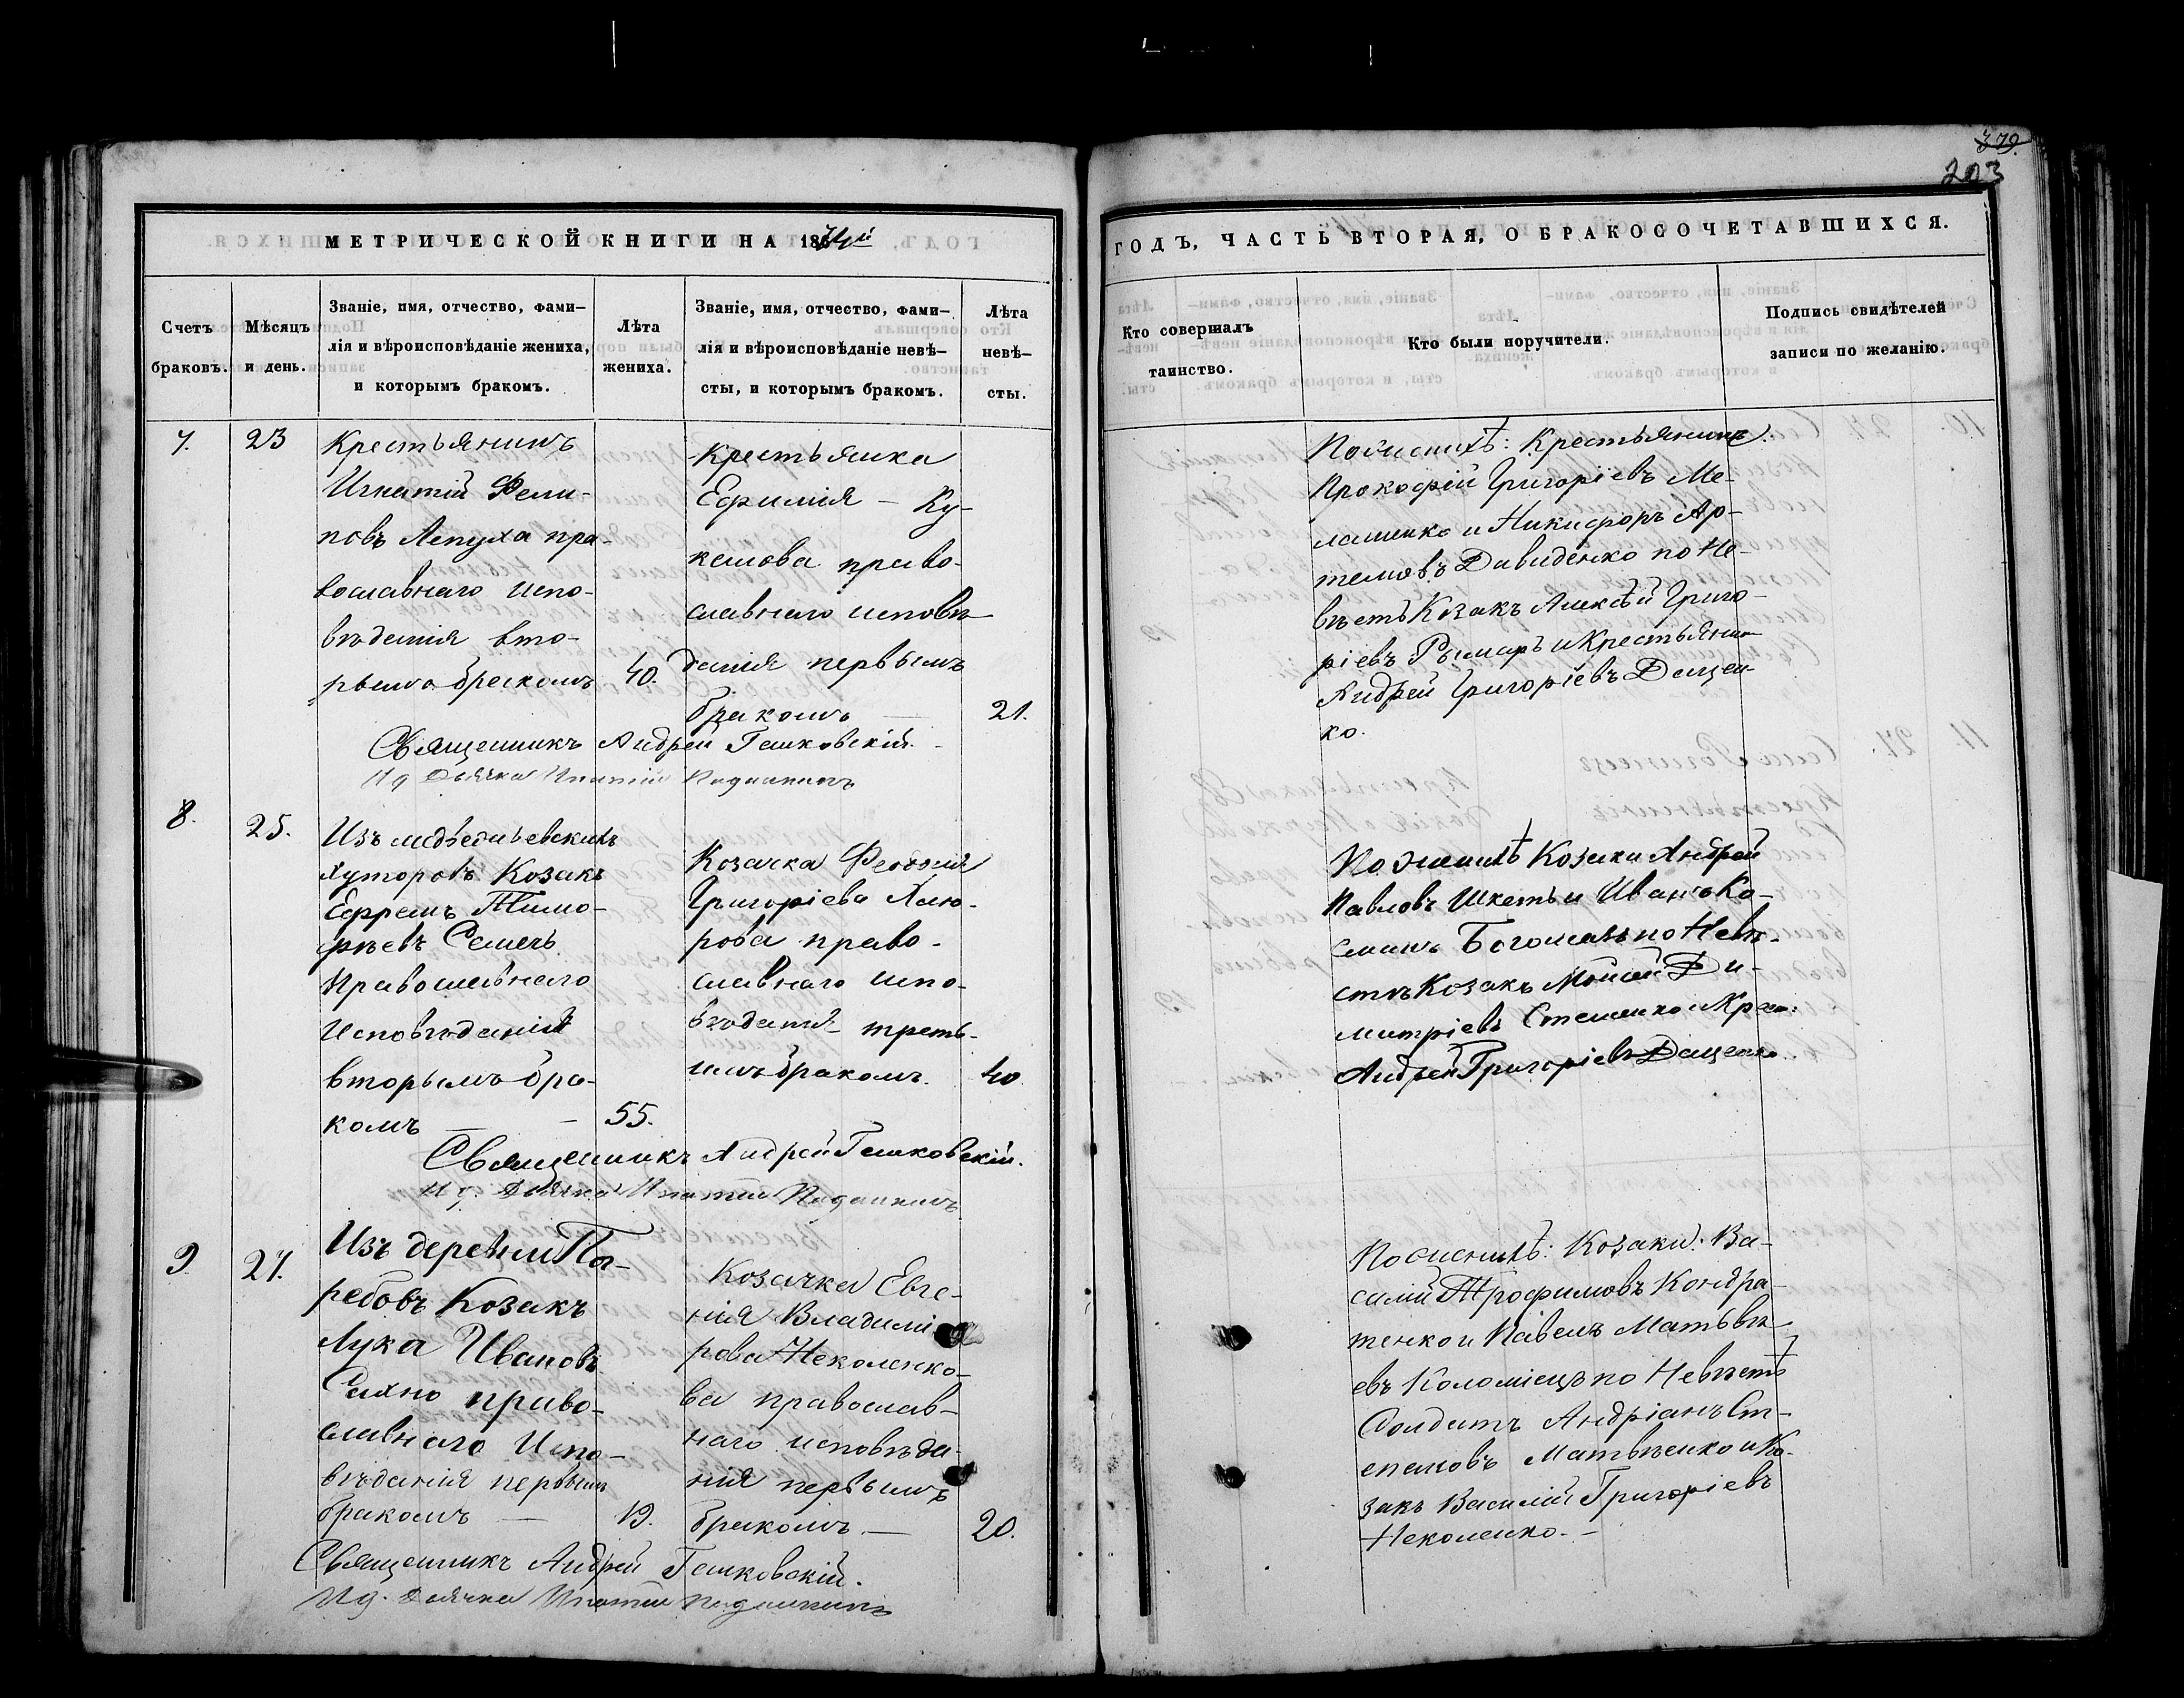 379.
203
МЕТРИЧЕСКОЙ КНИГИ НА 1874й
ГОДЪ, ЧАСТЬ ВТОРАЯ, О БРАКОСОЧЕТАВШИХСЯ.
Счетъ браковъ.
Мѣсяцъ и день.
Званіе, имя, отчество, фами-
лія и вѣроисповѣданіе жениха,
и которымъ бракомъ.
Лѣта
жениха.
Званіе, имя, отчество, фами-
лія и вѣроисповѣданіе невѣ-
сты, и которымъ бракомъ.
Лѣта
невѣ-
сты.
Кто совершалъ
таинство.
Кто были поручители.
Подпись свидѣтелей
записи по желанію.
7.
23
Крестьянинъ
Игнатій Фели-
повъ Лепуха пра-
вославнаго испо-
вѣданія вто-
рымъ бракомъ
40.
Крестьянка
Ефимія — Ку-
право-
славнаго исповѣ-
данія первымъ
бракомъ —
21.
Священникъ Андрей Гашковскій.
Ид Дьячка Ипатій
По женихѣ: Крестьянинъ
Прокофій Григоріевъ Ме-
лашенко и Никифоръ Ар-
темовъ Давиденко по Не-
вѣстѣ Козакъ Алексѣй Григо-
ріевъ Рымаръ и Крестьянинъ
Андрей Григоріевъ Дацен-
ко.
8.
25.
Изъ
хуторовъ Козакъ
Ефремъ Тимо-
фѣевъ
Православнаго
Исповѣданія
вторымъ бра-
комъ — —
55.
Козачка Феодосія
Григоріева
рова право-
славнаго испо-
вѣданія треть-
имъ бракомъ.
40
Священникъ Андрей Гашковскій.
Ид. Дьячка Ипатій
По женихѣ Козаки Андрей
Павловъ Шкеть и Иванъ Ко-
сминъ Богомазъ по Невѣ-
стѣ Козакъ Моисей Ди-
митріевъ Стешенко и Крест:
Андрей Григоріевъ Даценко.
9.
27.
Изъ деревни Па-
ребовъ Козакъ
Лука Ивановъ
Сахно право-
славнаго Испо-
вѣданія первымъ
бракомъ —
19.
Козачка Евге-
нія Владимі-
рова Неколенко-
ва православ-
наго исповѣда-
нія первымъ
бракомъ —
20.
Священникъ Андрей Гашковскій.
Ид. Дьячка Ипатій
По женихѣ: Козаки: Ва-
силій Трофимовъ Кондра-
тенко и Павелъ Матвѣ-
евъ Коломіецъ по Невѣстѣ
Солдатъ Андріанъ Ст-
епановъ Матвѣенко и Ко-
закъ Василій Григоріевъ
Неколенко. —